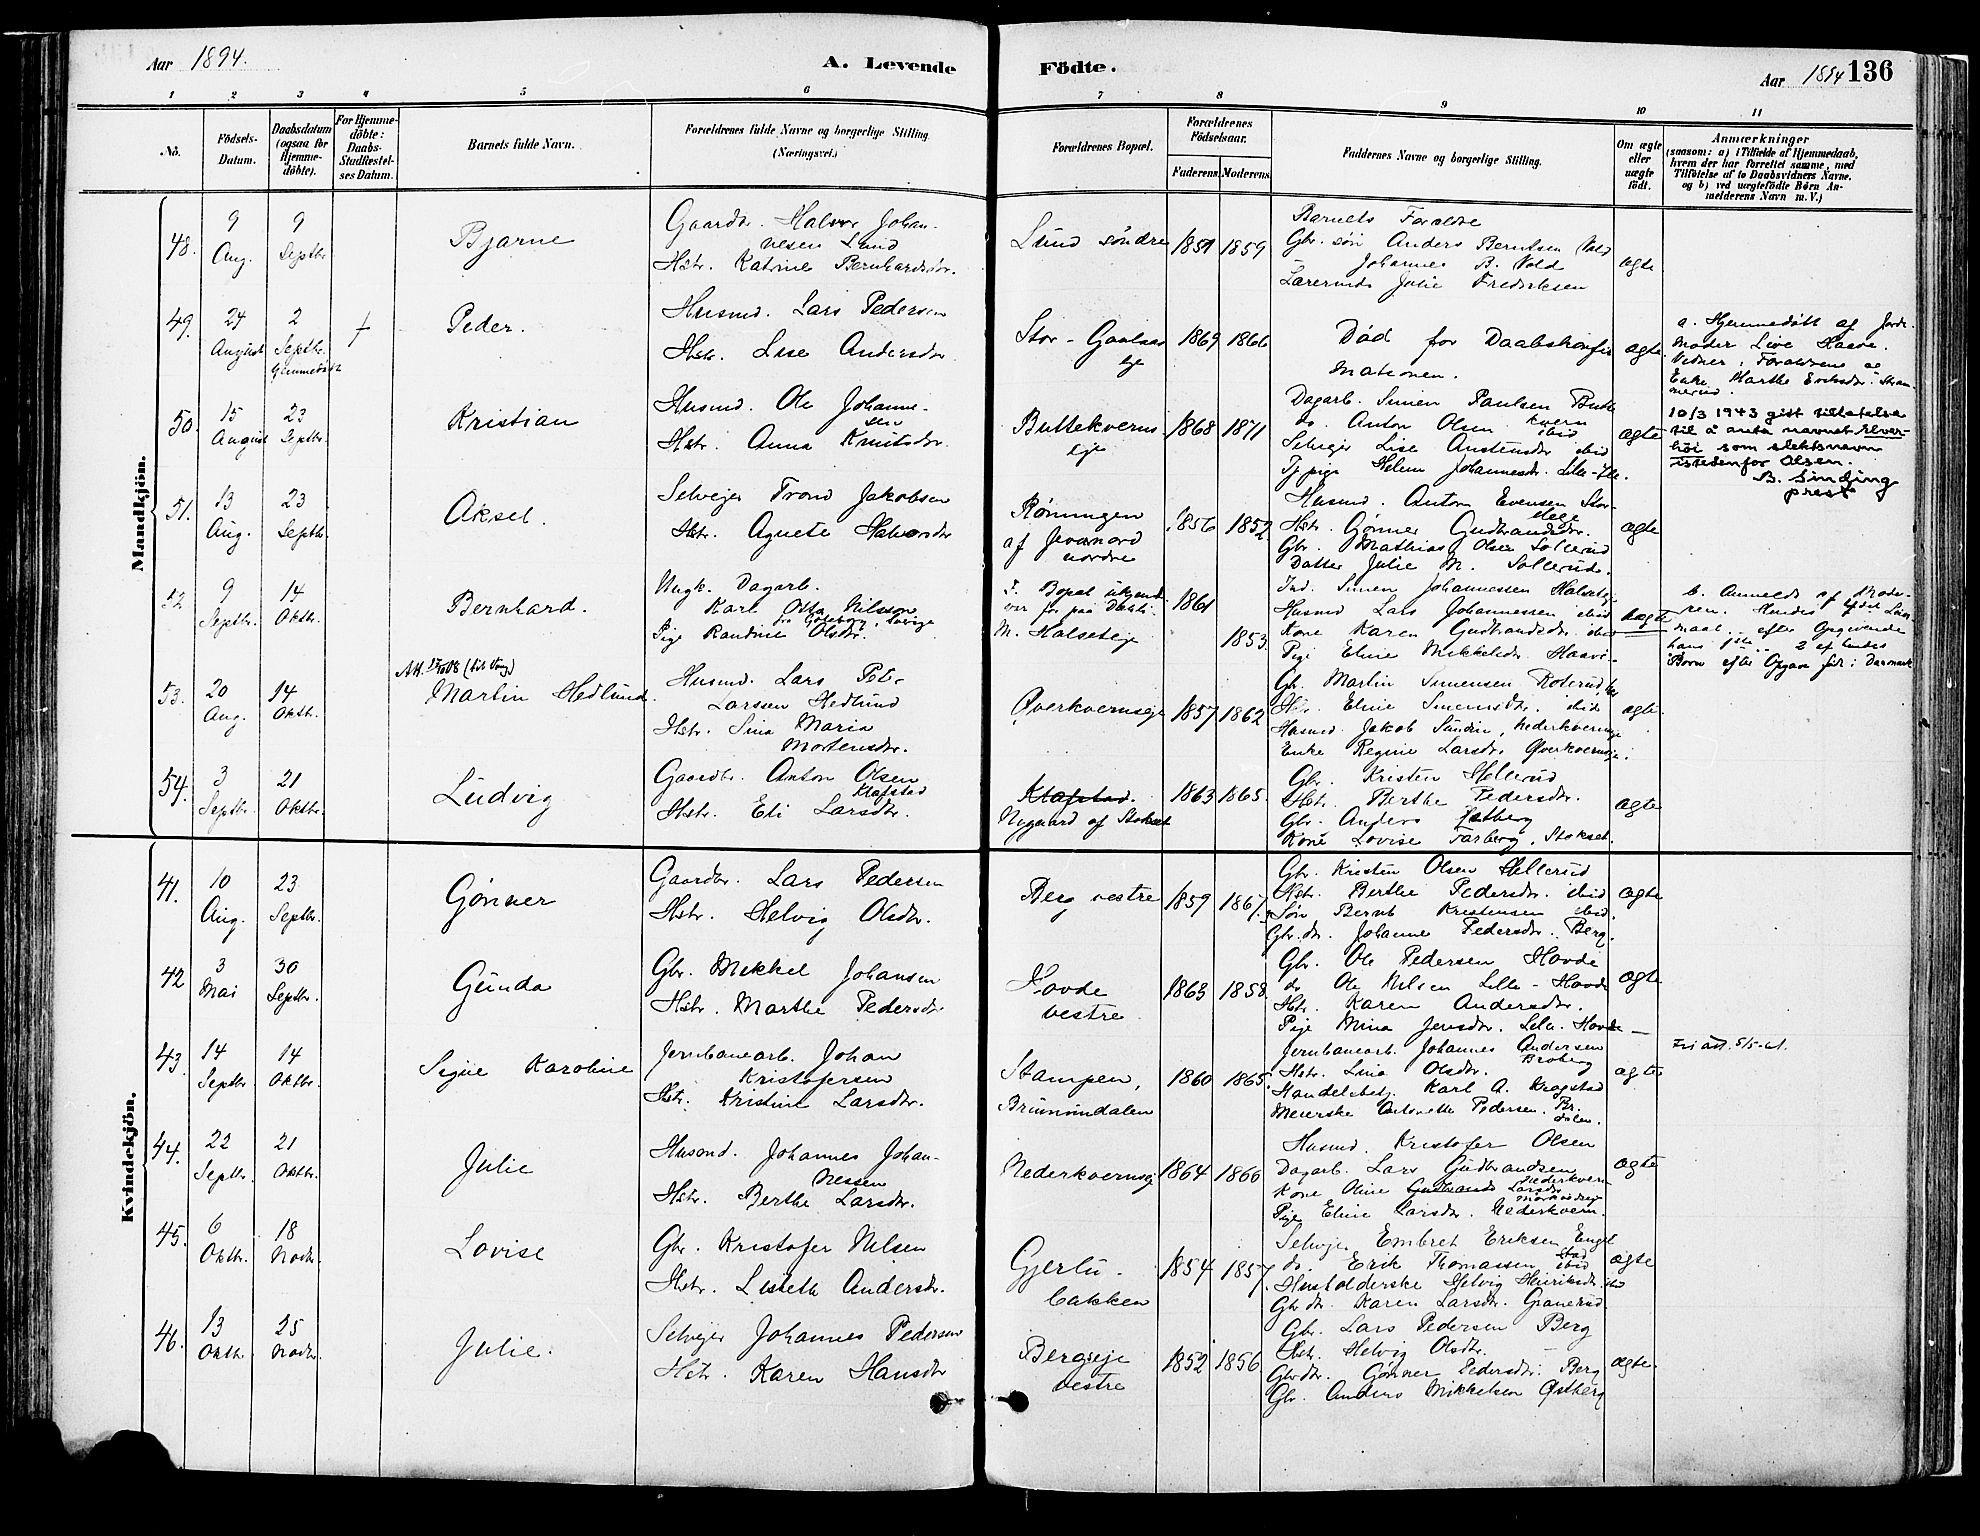 Aar 1894.
A. Levende
Födte.
Aar 1894
136
1 2 3 4 5 6 7 8 9 10 11
No.
Födsels-
Datum.
Daabsdatum
(ogsaa for
Hjemme-
döbte).
For Hjemme-
döbte:
Daabs-
Stadfæstel-
ses Datum.
Barnets fulde Navn.
Forældrenes fulde Navne og borgerlige Stilling
(Næringsvei.)
Forældrenes Bopæl.
Forældrenes
Födselsaar.
Faderens. Moderens.
Faddernes Navne og borgerlige Stilling.
Om ægte
eller
uægte
födt.
Anmærkninger
(saasom: a) i Tilfælde af Hjemmedaab,
hvem der har forrettet samme, med
Tilföielse af to Daabsvidners Navne.
og b) ved uægtefödte Börn An-
melderens Navn m. V.)
Mandkjön.
48.
9
Aug.
9
Septbr.
Bjarne
Gaardbr. Halvor Johan-
nesen Lund
Hstr. Katrine Bernhardsdtr.
Lund söndre
1851 1859
Barnets Forældre
Gbr. sön Anders Berntsen Vold
Johannes B. Vold
Lærerinde Julie Fredriksen
ægte
49.
24
August
2
Septbr.
Hjemmedöbt
Peder.
Husmd. Lars Pedersen
Hstr. Lise Andersdtr.
Stor-Gaalaas
eje
1869 1866
Död for Daabskonfir
mationen.
ægte
a. Hjemmedöbt af Jorde-
moder Live Haave.
Vidner, Forældrene og
Enke Marthe Eriksdtr.
50.
15
August
23
Septbr.
Kristian
Husmd. Ole Johanne-
sen
Hstr. Anna Knutsdtr.
Buttekverns
eje
1868 1871
Dagarb. Simen Paulsen Butte
kvern
do. Anton Olsen ibid
Selvejer Lise Austensdtr. ibid
Tj. pige Helene Johannesdtr.
ægte
10/3 1943 gitt tillatelse
til å anta navnet Elver-
höi som slektsnavn
istedenfor Olsen.
B. Sinding
prest
51.
13
Aug.
23
Septbr.
Aksel.
Selvejer Trond Jakobsen
Hstr. Agnete Halvorsdtr
Röningen
af
nordre
1856 1852
Husmd. Anton Evensen Stor-
Hstr. Gönner Gudbrandsdtr.
Gbr. Mathias Olsen Sollerud
Datter Julie M. Sollerud.
ægte
52.
9
Septbr.
14
Oktbr.
Bernhard.
Ungk. Dagarb.
Karl Otto Nilsson
fra Göteborg, Sverige
Pige Randine Olsdtr.
F. Bopæl ukjend
M. Halseteje
1861
1853
Ind. Simen Johannessen Halseteje
Husmd Lars Johannessen ibid
Kone Karen Gudbrandsdtr. ibid
Pige Eline Mikkelsdtr.
uægte
b. Anmeldt af Mode-
ren. Hendes
maal, efter Opgivende
hans 1ste. 2 af hendes
Börn efter Opgave föd i Danmark
53.
20
Aug.
14
Oktbr.
Martin Hedlund
Husmd. Lars Pete-
Larssen Hedlund
Hstr. Sina Maria
Mortensdtr.
Överkvernseje
1857 1862
Gbr. Martin Simensen Roterud,
Hstr. Eline Simensdtr. ibid.
Husmd Jakob Sundin, Nederkvernseje
Enke Regine Larsdtr. Överkvernseje.
ægte.
54.
3
Septbr.
21
Oktbr.
Ludvig
Gaardbr. Anton Olsen
Klafstad
Hstr. Eli Larsdtr.
Klafstad.
Nygaard af Stokset
1863 1865.
Gbr. Kristen Hellerud
Hstr. Berthe Pedersdtr.
Gbr. Anders Östberg
Kone Lovise Farberg, Stokset.
ægte
Kvindekjön.
41.
10
Aug.
23
Septbr.
Gönner
Gaardbr. Lars Pedersen
Hstr. Helvig Olsdtr.
Berg vestre
1859 1867.
Gbr. Kristen Olsen Hellerud
Hstr. Berthe Pedersdtr. ibid
Sön Bernt Kristensen ibid.
Gbr. dtr. Johanne Pedersdtr. Berg.
ægte
42
3
Mai
30
Septbr.
Gunda
Gbr. Mikkel Johansen
Hstr. Marthe Pedersdtr
Hovde
vestre
1863 1858.
Gbr. Ole Pedersen Hovde
do Ole Nilsen Lille-Hovde
Hstr. Karen Andersdtr.
Pige Mina Jensdtr. Lille Hovde
ægte
43.
14
Septbr.
14
Oktbr.
Signe Karoline
Jernbanearb. Johan
Kristofersen
Hstr. Kristine Larsdtr.
Stampen,
Brumundalen
1860 1865.
Jernbanearb. Johannes Andersen
Broberg
Hstr. Lina Olsdtr.
Handelsbetj. Karl A. Krogstad
Meierske Antonette Pedersen. Br.
dalen.
ægte
Fri att. 5/5-61.
44.
22
Septbr.
21
Oktbr.
Julie
Husmd. Johannes Johan-
nessen
Hstr. Berthe Larsdtr.
Nederkvernseje
1864 1866
Husmd. Kristofer Olsen
Dagarb. Lars Gudbrandsen
Nederkvern
Kone Oline Gudbrands Larsdtr
Pige Eline Larsdtr. Nederkvern.
ægte
45.
6
Oktbr.
18
Novbr.
Lovise
Gbr. Kristofer Nilsen
Hstr. Lisbeth Andersdtr.
Gjerlu-
bakken
1854 1857.
Selvejer Embret Eriksen Engl
stad
do. Erik Thomassen ibid
Husholderske Helvig Henriksdtr. ibid
Gbr dtr. Karen Larsdtr. Granerud.
ægte
46.
13
Oktbr.
25
Novbr.
Julie.
Selvejer Johannes Pedersen
Hstr. Karen Hansdtr
Bergseje
vestre
1852 1856
Gbr. Lars Pedersen Berg
Hstr. Helvig Olsdtr.
Gbrdtr. Gönner Pedersdtr. Berg
Gbr. Anders Mikkelsen Östberg
ægte.